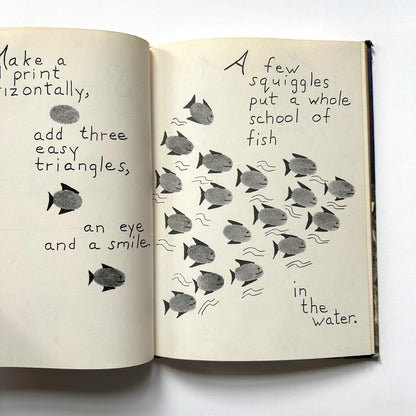 Make a
print
rizontally,
add three
easy
triangles,
an eye
and a smile.
A few
squiggles
put a whole
school of
fish
in
the
water.